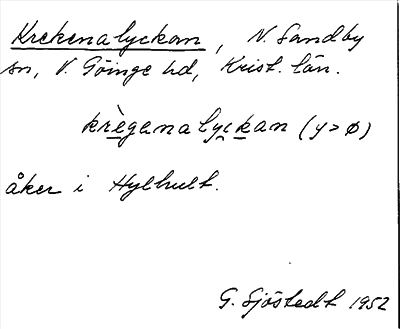 Krekenalyckan, N. Sandby
sn, V. Göinge hd, Krist. län.
krègenalyckan (y > ø)
åker i Hylhult.
G. Sjöstedt 1952